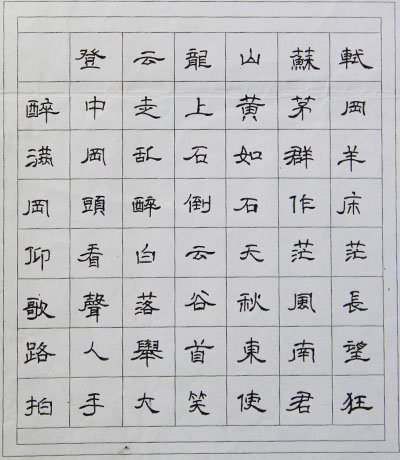 登云龍山蘇軾
醉中走上黄茅岡
滿岡乱石如群羊
岡頭醉倒石作床
仰看白云天茫茫
歌聲落谷秋風長
路人舉首東南望
拍手大笑使君狂